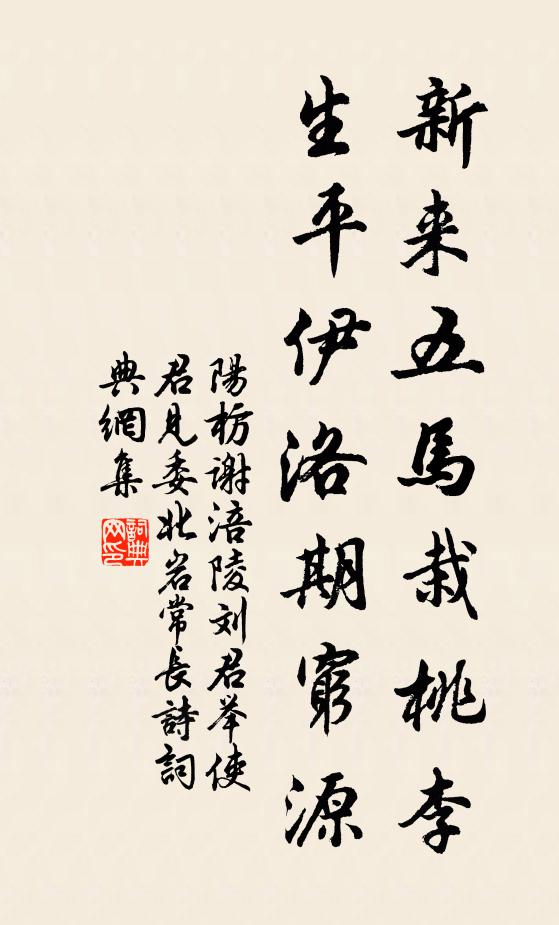 新来五馬栽桃李
生平伊洛期窮源
陽枋謝涪陵刘君举使
君見委北岩常長詩詞
典網集
詞典网印